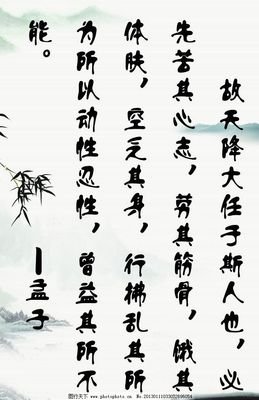 故天降大任于斯人也，必
先苦其心志，劳其筋骨，饿其
体肤，空乏其身，行拂乱其所
为所以动性忍性，曾益其所不
能。 —孟子
www.photophoto.cn